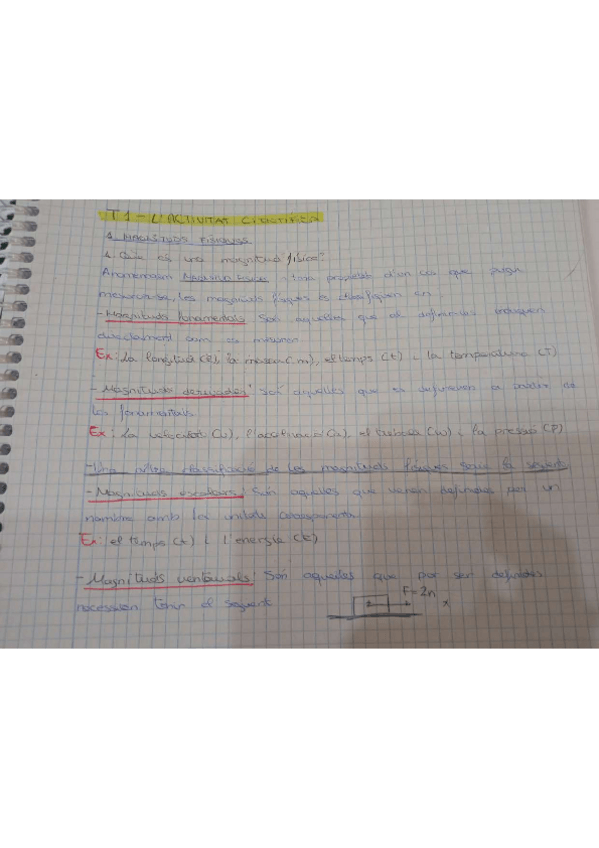 T1 - L'ACTIVITAT CIENTÍFICA
1. MAGNITUDS FÍSIQUES
1. Què és una magnitud física?
Anomenem Magnitud física una propietat d'un cos que pugui
mesurar-se, les magnituds físiques es classifiquen en:
- Magnituds fonamentals Són aquelles que al definir-les indiquen
directament com es mesuren
Ex: La longitud (l), la massa (m), el temps (t) i la temperatura (T)
- Magnituds derivades: Són aquelles que es defineixen a partir de
les fonamentals
Ex: La velocitat (v), l'acceleració (a), el treball (w) i la pressió (P)
- Una altra classificació de les magnituds físiques seria la següent
- Magnituds escalars: Són aquelles que venen definides per un
nombre amb la unitat corresponent
Ex: el temps (t) i l'energia (E)
- Magnituds vectorials: Són aquelles que per ser definides
necessiten tenir el següent
F=2n
x